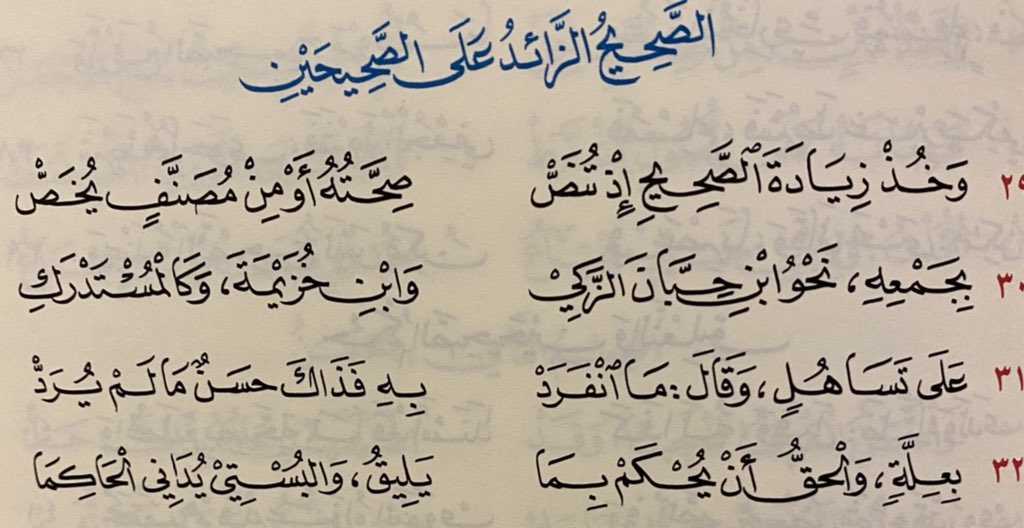 الصَّحِيحُ الزَّائِدُ عَلَى الصَّحِيحَيْنِ
٢٩ وَخُذْ زِيَادَةَ ٱلصَّحِيحِ إِذْ تُنَصّْ صِحَّتُهُ أَوْ مِنْ مُصَنَّفٍ يُخَصّْ
٣٠ بِجَمْعِهِ، نَحْوُ ابْنِ حِبَّانَ الزَّكِيْ وَابْنِ خُزَيْمَةَ، وَكَالْمُسْتَدْرَكِ
٣١ عَلَى تَسَاهُلٍ، وَقَالَ: مَا ٱنْفَرَدْ بِهِ فَذَاكَ حَسَنٌ مَا لَمْ يُرَدّْ
٣٢ بِعِلَّةٍ، وَالْحَقُّ أَنْ يُحْكَمْ بِمَا يَلِيقُ، وَالْبُسْتِيْ يُدَانِي الْحَاكِمَا